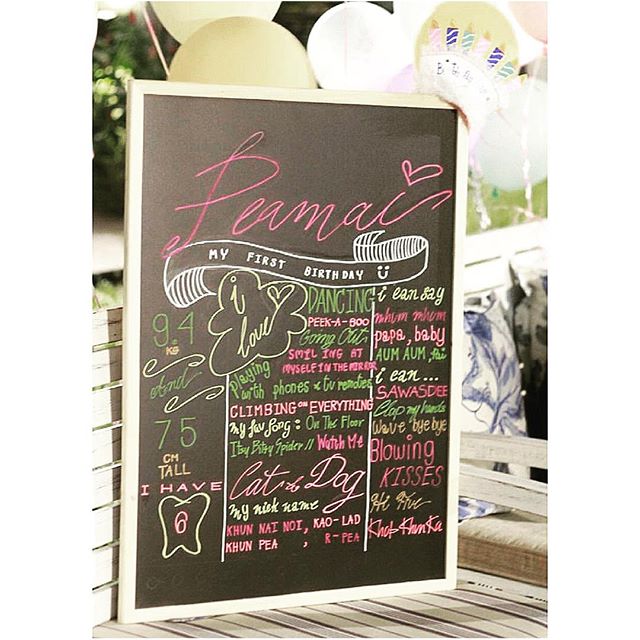 Peamai
MY FIRST BIRTHDAY
9.4
KG
And
75
CM
TALL
I HAVE
6
i
love
DANCING
PEEK-A-BOO
Going Out
SMILING AT
MYSELF IN THE MIRROR
playing
with phones & tv remotes
CLIMBING on EVERYTHING
my fav song : On The Floor
Itsy Bitsy Spider // Watch Me
Cat & Dog
my nick name
KHUN NAI NOI, KAO-LAD
KHUN PEA , R-PEA
i can say
mhum mhum
papa, baby
AUM AUM
i can ...
SAWASDEE
Clap my hands
wave bye bye
Blowing
KISSES
Hi Five
Khob Khun Ka